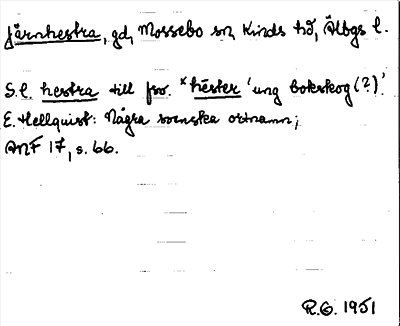 järnhestra, gd, Mossebo sn, Kinds hd, Älvbgs l.
S.l. hestra till fsv. *hēster 'ung bokskog(?)'.
E. Hellquist: Några svenska ortnamn;
ANF 17, s. 66.
R.G. 1951